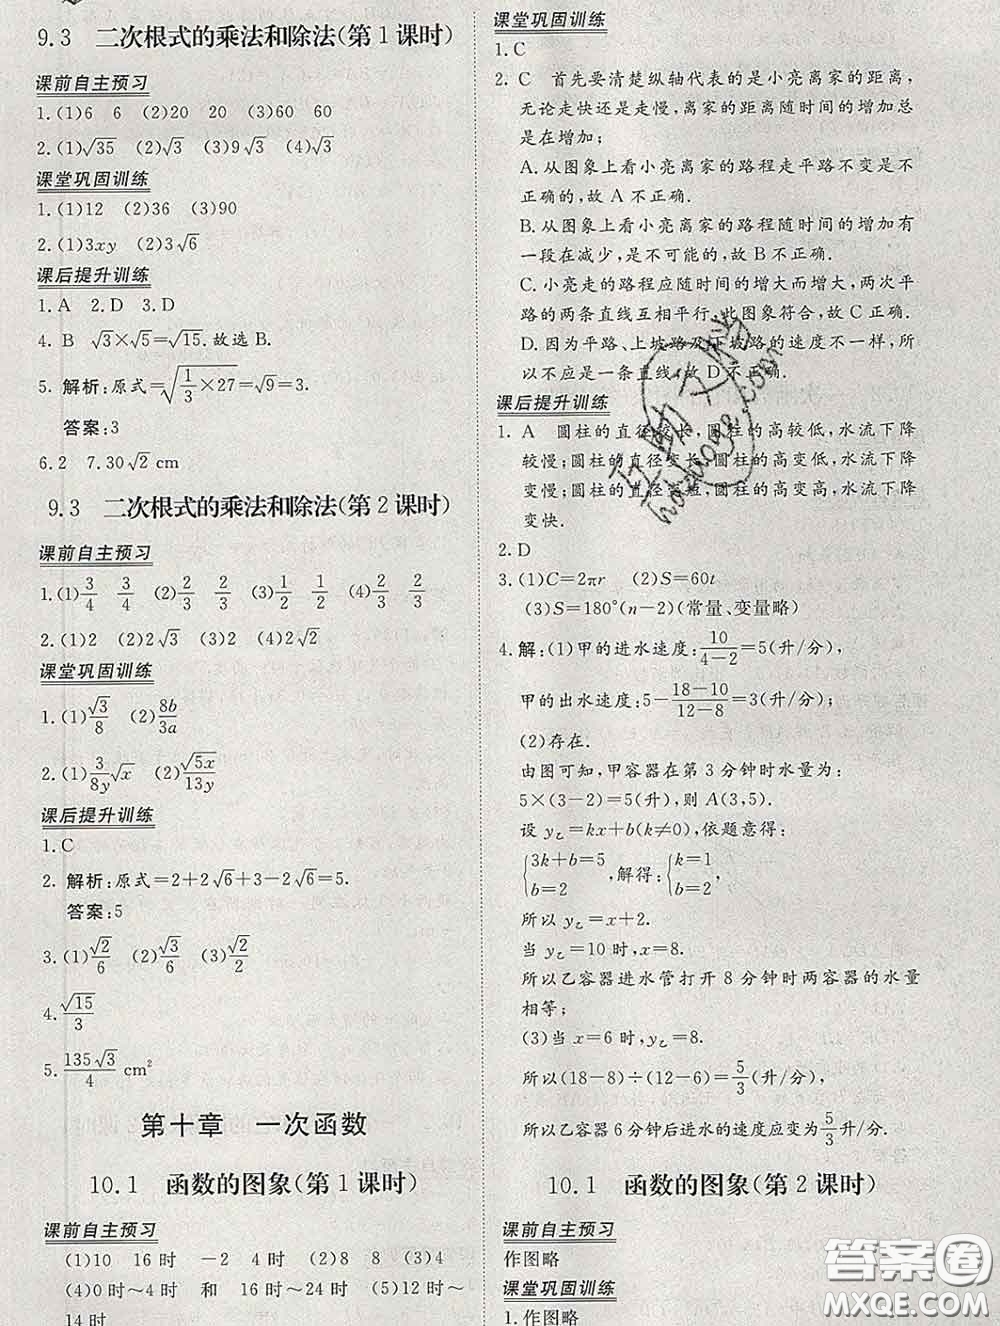 9.3 二次根式的乘法和除法(第1课时)
课前自主预习
1.(1)6 6 (2)20 20 (3)60 60
2.(1)√35 (2)√3 (3)9√3 (4)√3
课堂巩固训练
1.(1)12 (2)36 (3)90
2.(1)3xy (2)3√6
课后提升训练
1.A 2.D 3.D
4.B √3×√5=√15.故选B.
5.解析:原式=√(1/3×27)=√9=3.
答案:3
6.2 7.30√2 cm
9.3 二次根式的乘法和除法(第2课时)
课前自主预习
1.(1)3/4 3/4 (2)2/3 2/3 (3)1/2 1/2 (4)2/3 2/3
2.(1)2 (2)2√3 (3)2 (4)2√2
课堂巩固训练
1.(1)√3/8 (2)8b/3a
2.(1)3/8y√x (2)√5x/13y
课后提升训练
1.C
2.解析:原式=2+2√6+3-2√6=5.
答案:5
3.(1)√2/6 (2)√3/6 (3)√2/2
4.√15/3
5.135√3/4 cm²
第十章 一次函数
10.1 函数的图象(第1课时)
课前自主预习
(1)10 16时 -2 4时 (2)8 8 (3)4
(4)0时~4时 和 16时~24时 (5)12时~
14时
课堂巩固训练
1.C
2.C 首先要清楚纵轴代表的是小亮离家的距离,
无论走快还是走慢,离家的距离随时间的增加总
是在增加;
A.从图象上看小亮离家的路程走平路不变是不
正确的,故A不正确.
B.从图象上看小亮离家的路程随时间的增加有
一段在减少,是不可能的,故B不正确.
C.小亮走的路程应随时间的增大而增大,两次平
路的两条直线互相平行,此图象符合,故C正确.
D.因为平路、上坡路及下坡路的速度不一样,所
以不应是一条直线,故D不正确.
课后提升训练
1.A 圆柱的直径较长,圆柱的高较低,水流下降
较慢;圆柱的直径变长,圆柱的高变低,水流下降
变慢;圆柱的直径变短,圆柱的高变高,水流下降
变快.
2.D
3.(1)C=2πr (2)S=60t
(3)S=180°(n-2)(常量、变量略)
4.解:(1)甲的进水速度:10/(4-2)=5(升/分),
甲的出水速度:5-(18-10)/(12-8)=3(升/分);
(2)存在.
由图可知,甲容器在第3分钟时水量为:
5×(3-2)=5(升),则A(3,5).
设y乙=kx+b(k≠0),依题意得:
{3k+b=5 b=2,解得:{k=1 b=2,
所以y乙=x+2.
当y乙=10时,x=8.
所以乙容器进水管打开8分钟时两容器的水量
相等;
(3)当x=6时,y乙=8.
所以(18-8)÷(12-6)=5/3(升/分),
所以乙容器6分钟后进水的速度应变为5/3升/分.
10.1 函数的图象(第2课时)
课前自主预习
作图略
课堂巩固训练
1.作图略
互助文档
答案圈
MXQE.COM